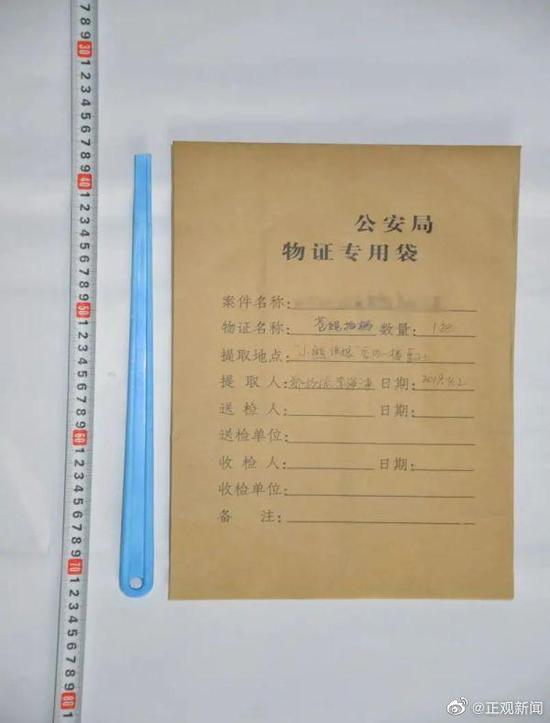 公安局
物证专用袋
案件名称:
物证名称: 苍蝇拍柄 数量: 1把
提取地点:
提取人: 日期: 2019.4.2
送检人: 日期:
送检单位:
收检人: 日期:
收检单位:
备注:
7 8 9 30 1 2 3 4 5 6 7 8 9 40 1 2 3 4 5 6 7 8 9 50 1 2 3 4 5 6 7 8 9 60 1 2 3 4 5 6 7 8 9 70 1 2 3 4 5 6 7 8 9 80 1
@正观新闻